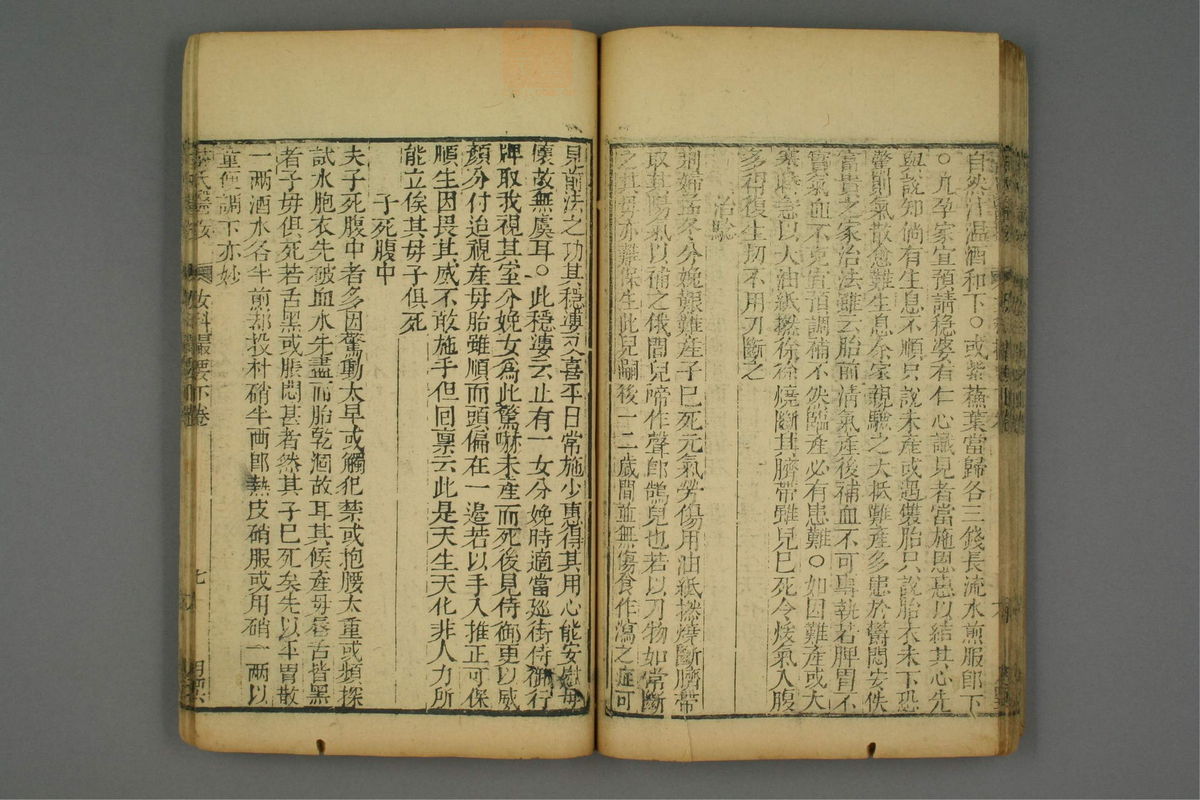 自然汁温酒和下○或紫蘇葉當歸各三錢長流水煎服即下
○凡孕家宜預請穩婆有仁心識見者當施恩惠以結其心先
與說知倘有生息不順只說未產或遇雙胎只說胎衣未下恐
驚則氣散愈難生息余家親驗之大抵難產多患於鬱悶安佚
富貴之家治法雖云胎前清氣產後補血不可專執若脾胃不
實氣血不充宜預調補不然臨產必有患難○如因難產或大
寒時急以大油紙撚徐徐燒斷其臍帶雖兒已死令煖氣入腹
多得復生切不用刀斷之
治驗
荊婦孟冬分娩艱難產子已死元氣勞傷用油紙撚燒斷臍帶
取其陽氣以補之俄間兒啼作聲即鵠兒也若以刀物如常斷
之其母亦難保生此兒嗣後一二歲間並無傷食作瀉之症可
見前法之功其穩婆又喜平日常施少惠得其用心能安慰母
懷故無虞耳○此穩婆云止有一女分娩時適當巡街侍御行
牌取我視其室分娩女為此驚嚇未產而死後見侍御更以威
顏分付迨視產母胎雖順而頭偏在一邊若以手入推正可保
順生因畏其威不敢施手但回稟云此是天生天化非人力所
能立俟其母子俱死
子死腹中
夫子死腹中者多因驚動太早或觸犯禁或抱腰太重或頻探
試水胞衣先破血水先盡而胎乾涸故耳其候產母唇舌皆黑
者子母俱死若舌黑或脹悶甚者然其子已死矣先以平胃散
一兩酒水各半煎却投朴硝半兩即熱皮硝服或用硝一兩以
童便調下亦妙
薛氏醫按 女科撮要下卷 七